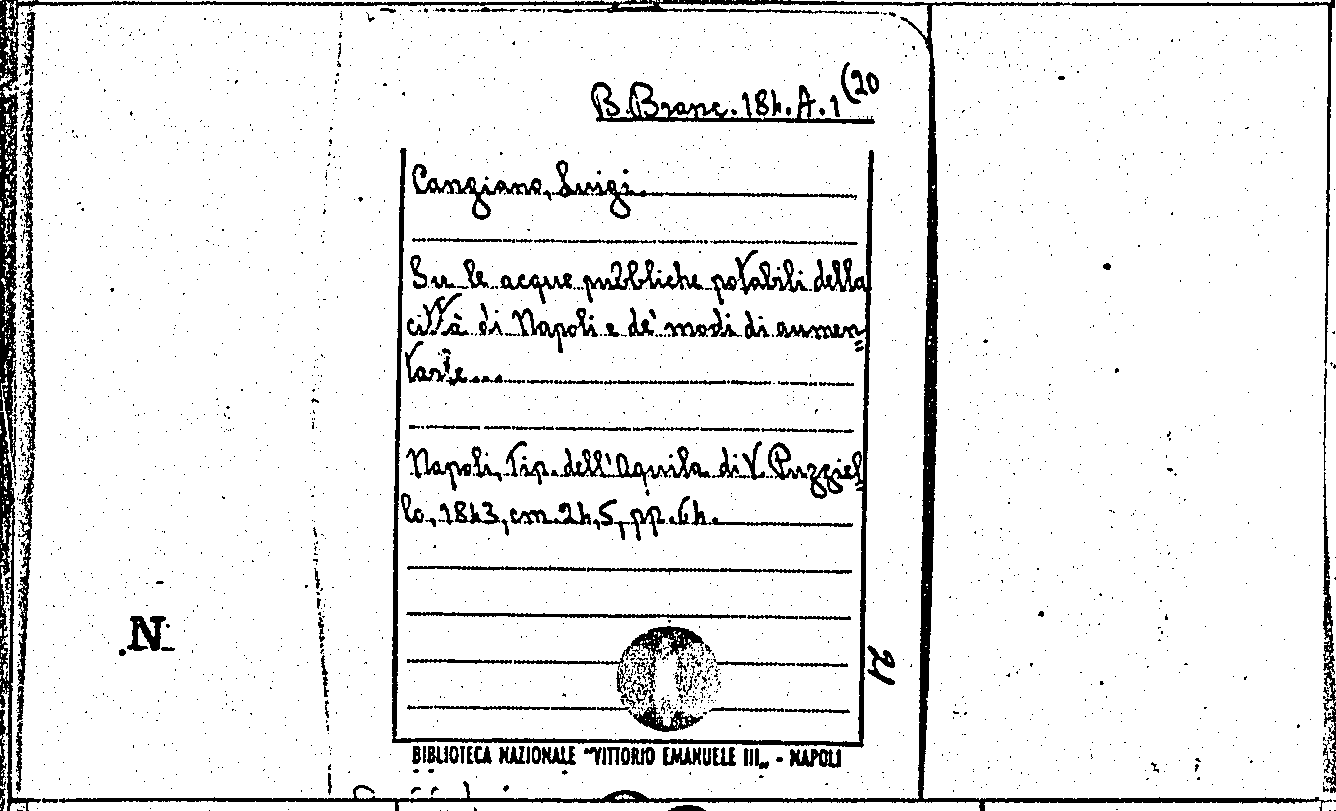 B. Branc. 184. A. 1 (20
Cangiano, Luigi.
Su le acque pubbliche potabili della
città di Napoli e de' modi di aumen=
tarle...
Napoli, Tip. dell'Aquila di V. Puzziel=
lo, 1843, cm. 24,5, pp. 64.
N
21
BIBLIOTECA NAZIONALE "VITTORIO EMANUELE III„ - NAPOLI